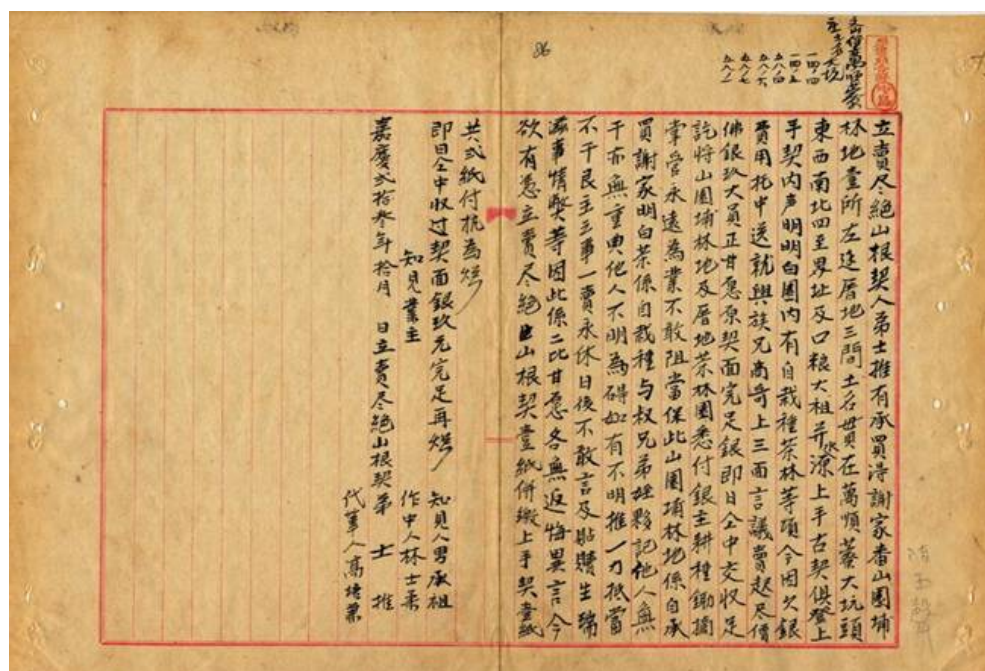 86
立賣尽絕山根契人弟士推有承買得謝家番山園埔
林地壹所左進厝地三間土名毋貝在萬順藔大坑頭
東西南北四至界址及口粮大租并水源上手古契俱登上
手契内声明明白園内有自栽種茶林等項今因欠銀
費用托中送就與族兄高哥上三面言議賣起尽價
佛銀玖大員正甘愿原契面完足銀即日仝中交收足
訖將山園埔林地及厝地茶林園悉付銀主耕種鋤摘
掌管永遠為業不敢阻當保此山園埔林地係自承
買謝家明白茶係自栽種与叔兄弟姪夥記他人無
干亦無重典他人不明為碍如有不明推一力抵當
不干艮主之事一賣永休日後不敢言及貼贖生端
滋事情獘等因此係二比甘愿各無返悔異言今
欲有憑立賣尽絕山根契壹紙併繳上手契壹紙
共弍紙付执為炤
即日仝中收过契面銀玖元完足再炤
知見人男承祖
知見業主
作中人林士柔
嘉慶弍拾叁年拾月 日立賣尽絕山根契弟士推
代筆人高培業